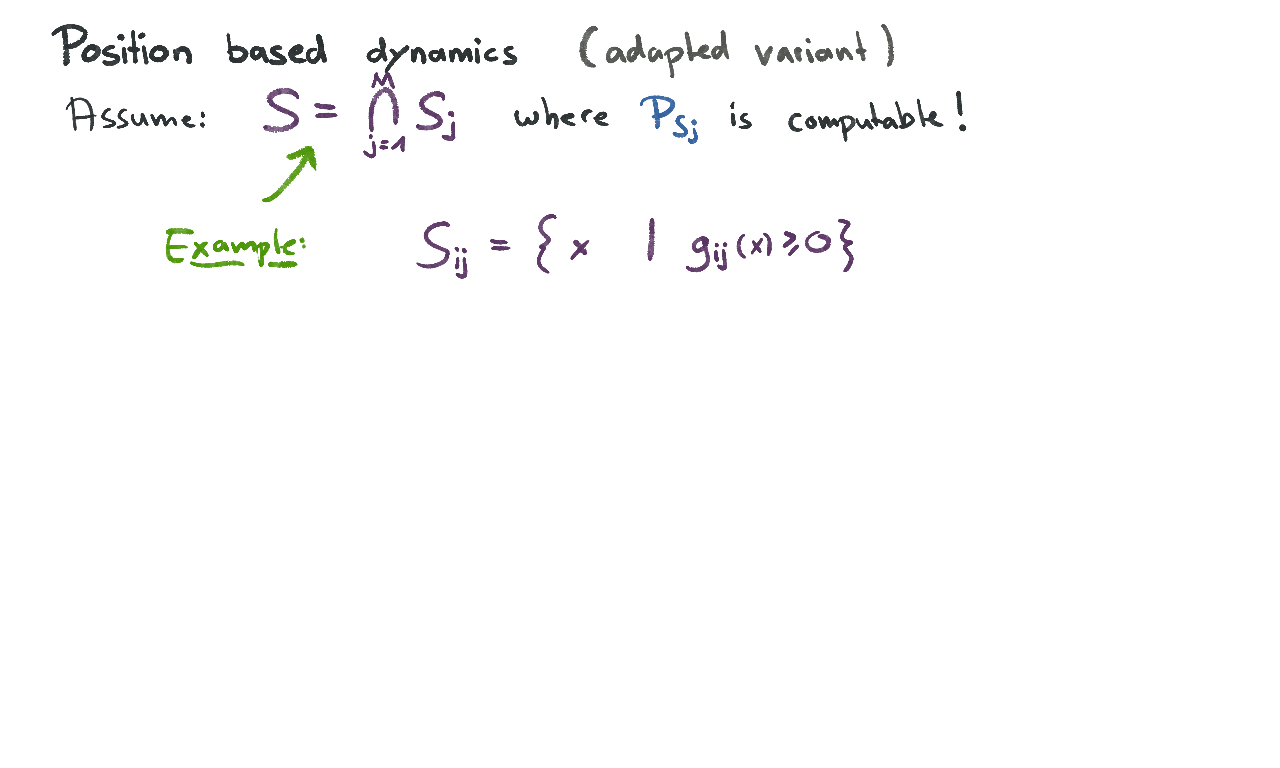 Position based dynamics (adapted variant)
Assume: S = ⋂_{j=1}^{M} S_j where P_{S_j} is computable!
Example: S_{ij} = { x | g_{ij}(x) ≥ 0 }